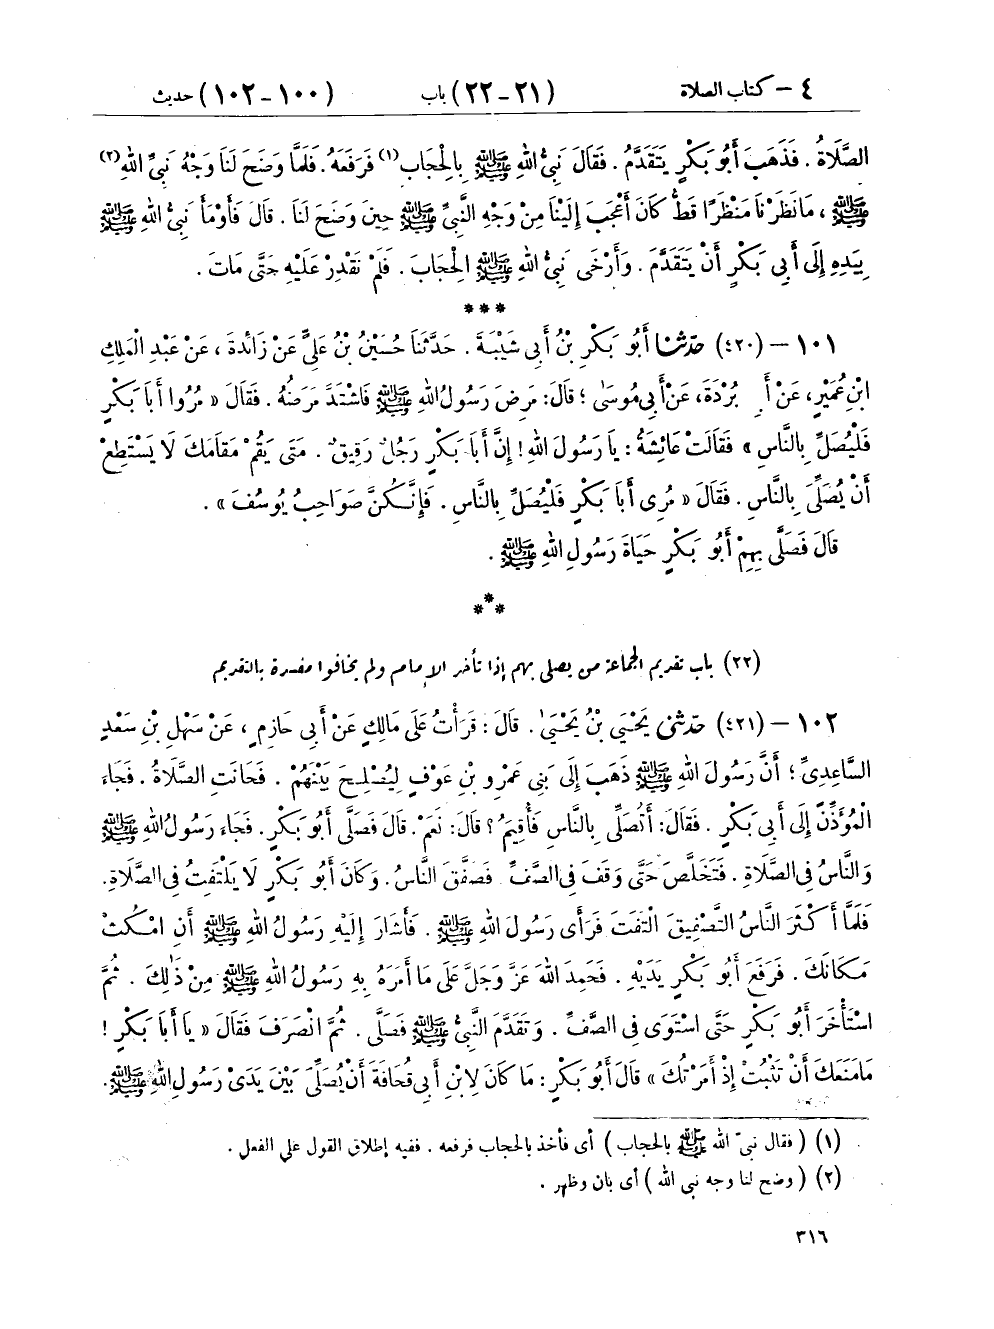 ٤ – كتاب الصلاة (٢١–٢٢) باب (١٠٠–١٠٢) حديث
الصَّلَاةُ. فَذَهَبَ أَبُو بَكْرٍ يَتَقَدَّمُ. فَقَالَ نَبِيُّ اللهِ ﷺ بِالْحِجَابِ(١) فَرَفَعَهُ. فَلَمَّا وَضَحَ لَنَا وَجْهُ نَبِيِّ اللهِ(٢)
ﷺ، مَا نَظَرْنَا مَنْظَرًا قَطُّ كَانَ أَعْجَبَ إِلَيْنَا مِنْ وَجْهِ النَّبِيِّ ﷺ حِينَ وَضَحَ لَنَا. قَالَ فَأَوْمَأَ نَبِيُّ اللهِ ﷺ
بِيَدِهِ إِلَى أَبِي بَكْرٍ أَنْ يَتَقَدَّمَ. وَأَرْخَى نَبِيُّ اللهِ ﷺ الْحِجَابَ. فَلَمْ نَقْدِرْ عَلَيْهِ حَتَّى مَاتَ.
***
١٠١ – (٤٢٠) حدّثنا أَبُو بَكْرِ بْنُ أَبِي شَيْبَةَ. حَدَّثَنَا حُسَيْنُ بْنُ عَلِيٍّ عَنْ زَائِدَةَ، عَنْ عَبْدِ الْمَلِكِ
ابْنِ عُمَيْرٍ، عَنْ أَبِي بُرْدَةَ، عَنْ أَبِي مُوسَى؛ قَالَ: مَرِضَ رَسُولُ اللهِ ﷺ فَاشْتَدَّ مَرَضُهُ. فَقَالَ «مُرُوا أَبَا بَكْرٍ
فَلْيُصَلِّ بِالنَّاسِ» فَقَالَتْ عَائِشَةُ: يَا رَسُولَ اللهِ! إِنَّ أَبَا بَكْرٍ رَجُلٌ رَقِيقٌ. مَتَى يَقُمْ مَقَامَكَ لَا يَسْتَطِعْ
أَنْ يُصَلِّيَ بِالنَّاسِ. فَقَالَ «مُرِى أَبَا بَكْرٍ فَلْيُصَلِّ بِالنَّاسِ. فَإِنَّكُنَّ صَوَاحِبُ يُوسُفَ».
قَالَ فَصَلَّى بِهِمْ أَبُو بَكْرٍ حَيَاةَ رَسُولِ اللهِ ﷺ.
***
(٢٢) باب تقديم الجماعة من يصلى بهم إذا تأخر الإمام ولم يخافوا مفسدة بالتقديم
١٠٢ – (٤٢١) حدّثنى يَحْيَى بْنُ يَحْيَىٰ. قَالَ: قَرَأْتُ عَلَى مَالِكٍ عَنْ أَبِي حَازِمٍ، عَنْ سَهْلِ بْنِ سَعْدٍ
السَّاعِدِيِّ؛ أَنَّ رَسُولَ اللهِ ﷺ ذَهَبَ إِلَى بَنِي عَمْرِو بْنِ عَوْفٍ لِيُصْلِحَ بَيْنَهُمْ. فَحَانَتِ الصَّلَاةُ. فَجَاءَ
الْمُؤَذِّنُ إِلَى أَبِي بَكْرٍ. فَقَالَ: أَتُصَلِّي بِالنَّاسِ فَأُقِيمُ؟ قَالَ: نَعَمْ. قَالَ فَصَلَّى أَبُو بَكْرٍ. فَجَاءَ رَسُولُ اللهِ ﷺ
وَالنَّاسُ فِي الصَّلَاةِ. فَتَخَلَّصَ حَتَّى وَقَفَ فِي الصَّفِّ فَصَفَّقَ النَّاسُ. وَكَانَ أَبُو بَكْرٍ لَا يَلْتَفِتُ فِي الصَّلَاةِ.
فَلَمَّا أَكْثَرَ النَّاسُ التَّصْفِيقَ الْتَفَتَ فَرَأَى رَسُولَ اللهِ ﷺ. فَأَشَارَ إِلَيْهِ رَسُولُ اللهِ ﷺ أَنِ امْكُثْ
مَكَانَكَ. فَرَفَعَ أَبُو بَكْرٍ يَدَيْهِ. فَحَمِدَ اللهَ عَزَّ وَجَلَّ عَلَى مَا أَمَرَهُ بِهِ رَسُولُ اللهِ ﷺ مِنْ ذٰلِكَ. ثُمَّ
اسْتَأْخَرَ أَبُو بَكْرٍ حَتَّى اسْتَوَى فِي الصَّفِّ. وَتَقَدَّمَ النَّبِيُّ ﷺ فَصَلَّى. ثُمَّ انْصَرَفَ فَقَالَ «يَا أَبَا بَكْرٍ!
مَا مَنَعَكَ أَنْ تَثْبُتَ إِذْ أَمَرْتُكَ» قَالَ أَبُو بَكْرٍ: مَا كَانَ لِابْنِ أَبِي قُحَافَةَ أَنْ يُصَلِّيَ بَيْنَ يَدَىْ رَسُولِ اللهِ ﷺ.
(١) (فقال نبيّ الله ﷺ بالحجاب) أى فأخذ بالحجاب فرفعه. ففيه إطلاق القول على الفعل.
(٢) (وضح لنا وجه نبي الله) أى بان وظهر.
٣١٦